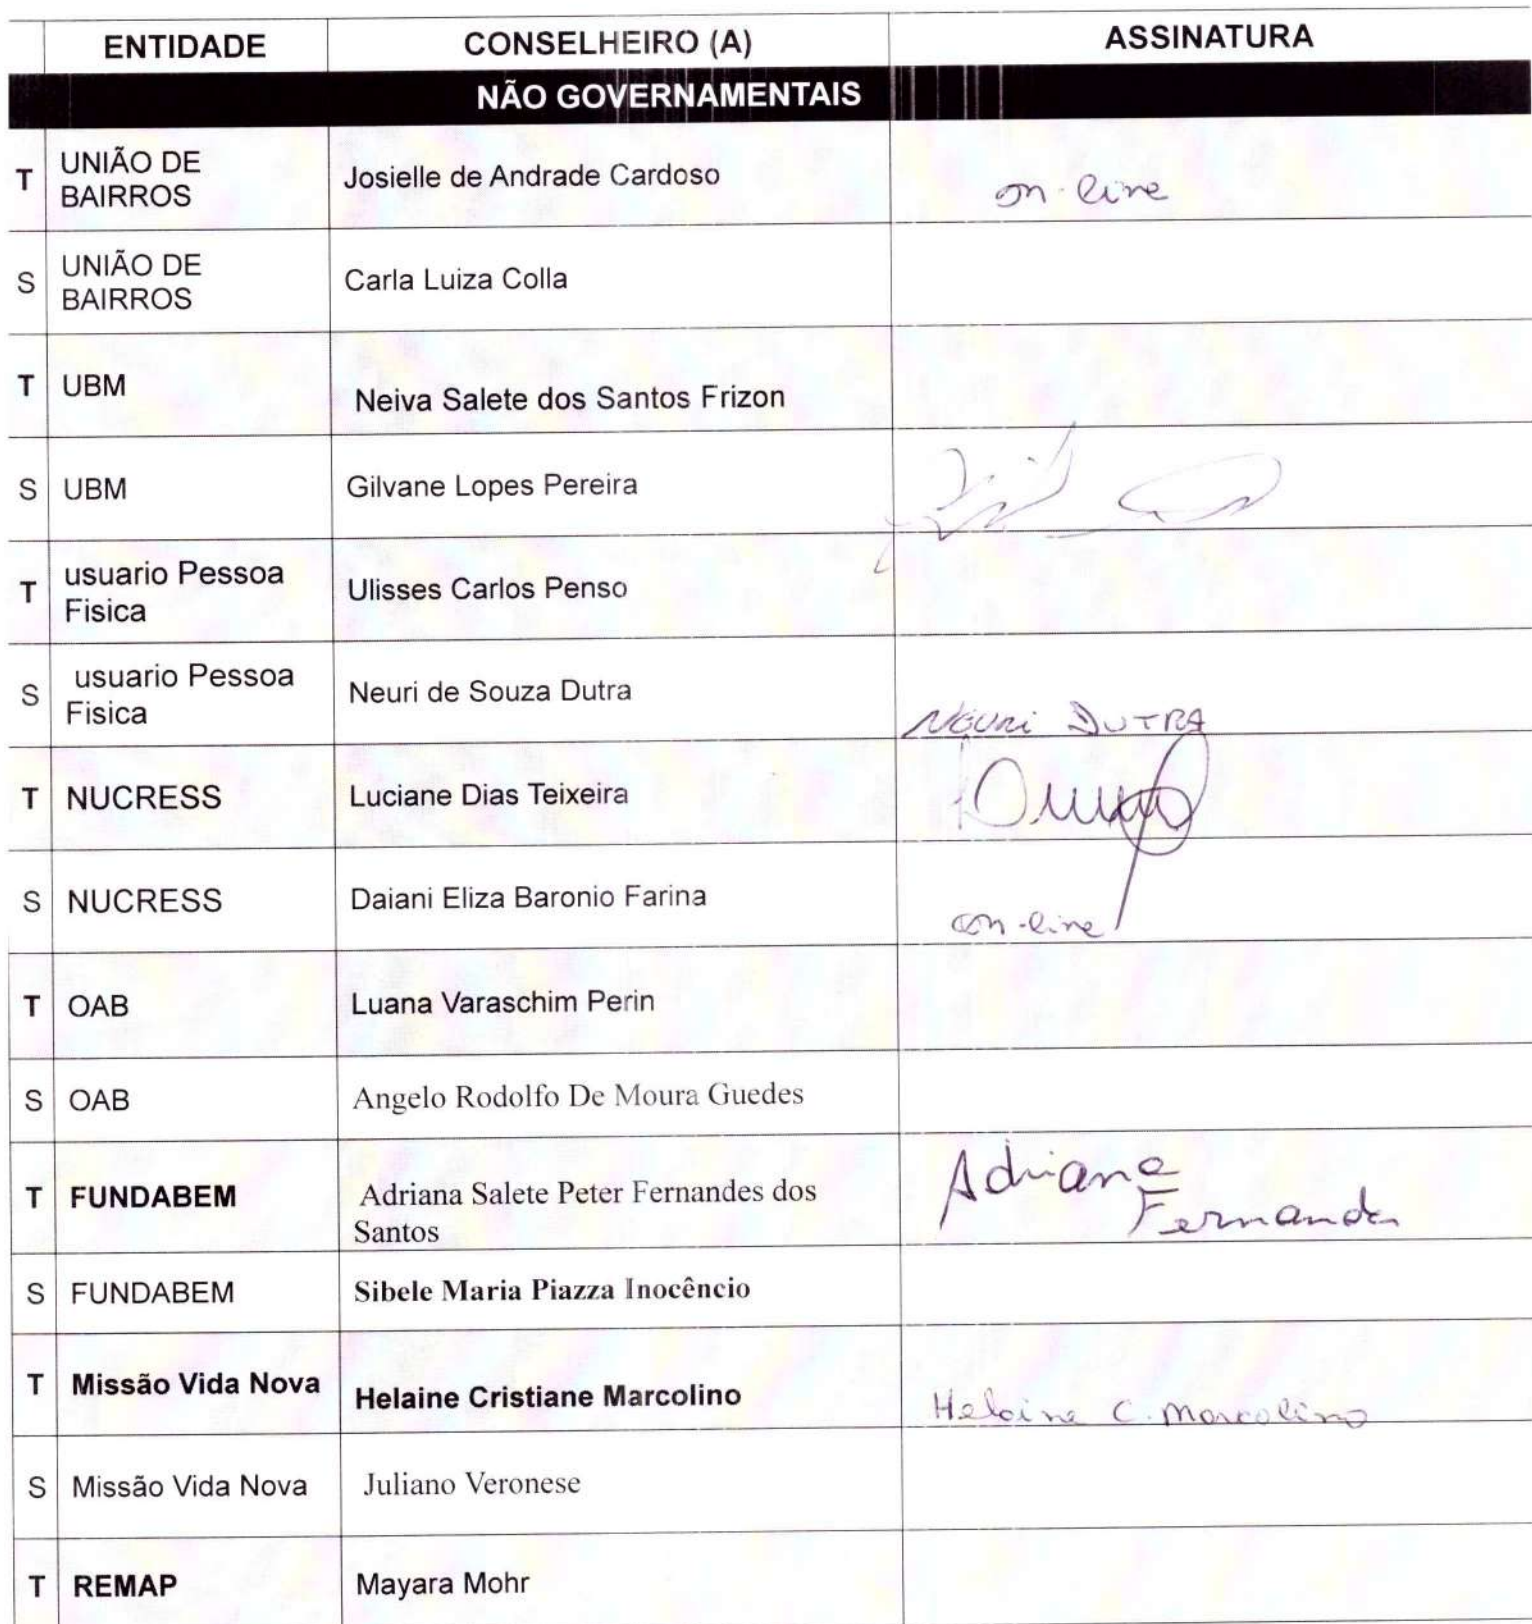 ENTIDADE CONSELHEIRO (A) ASSINATURA
NÃO GOVERNAMENTAIS
T UNIÃO DE BAIRROS Josielle de Andrade Cardoso on-line
S UNIÃO DE BAIRROS Carla Luiza Colla
T UBM Neiva Salete dos Santos Frizon
S UBM Gilvane Lopes Pereira
T usuario Pessoa Fisica Ulisses Carlos Penso
S usuario Pessoa Fisica Neuri de Souza Dutra Neuri DUTRA
T NUCRESS Luciane Dias Teixeira
S NUCRESS Daiani Eliza Baronio Farina on-line
T OAB Luana Varaschim Perin
S OAB Angelo Rodolfo De Moura Guedes
T FUNDABEM Adriana Salete Peter Fernandes dos Santos Adriana Fernandes
S FUNDABEM Sibele Maria Piazza Inocêncio
T Missão Vida Nova Helaine Cristiane Marcolino Helaine C. Marcolino
S Missão Vida Nova Juliano Veronese
T REMAP Mayara Mohr